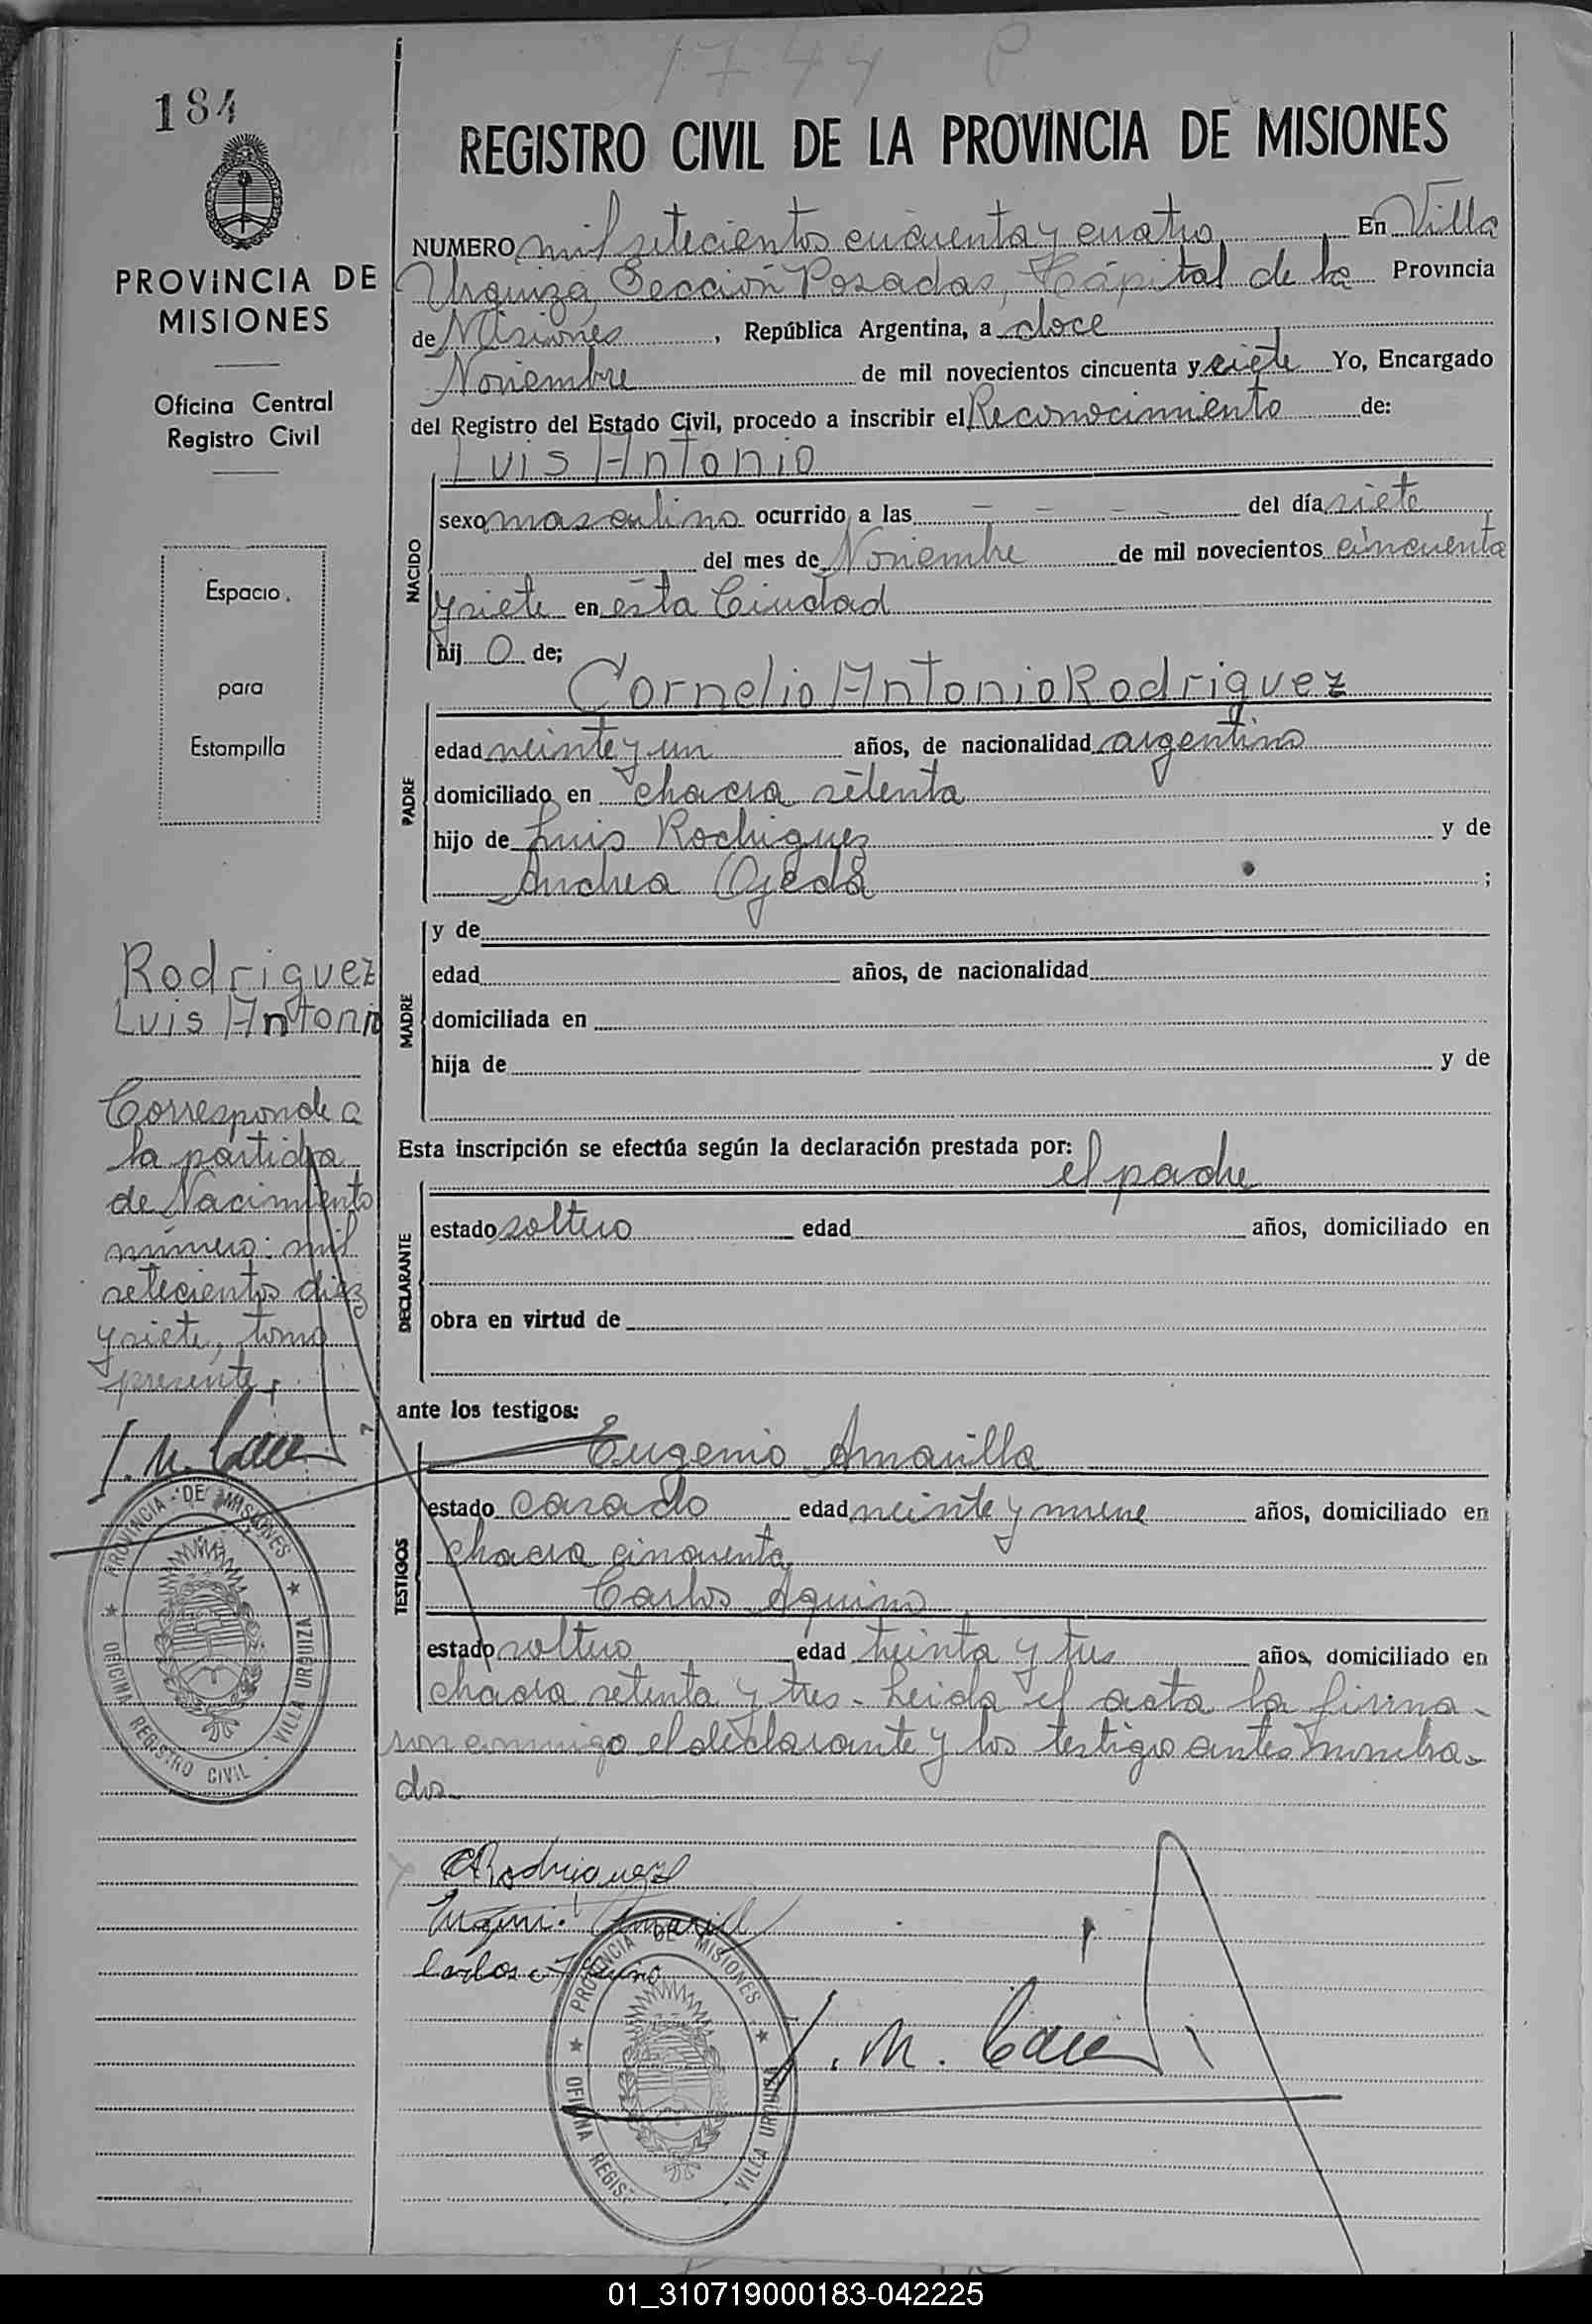 1744 P
184
REGISTRO CIVIL DE LA PROVINCIA DE MISIONES
PROVINCIA DE
MISIONES
Oficina Central
Registro Civil
Espacio
para
Estampilla
Rodriguez
Luis Antonio
Corresponde a
la partida
de Nacimiento
número: mil
setecientos diez
y siete, tomo
presente.
PROVINCIA DE MISIONES
OFICINA REGISTRO CIVIL · VILLA URQUIZA
NUMERO mil setecientos cuarenta y cuatro En Villa
Urquiza, Sección Posadas, Cápital de la Provincia
de Misiones, República Argentina, a doce
Noviembre de mil novecientos cincuenta y siete Yo, Encargado
del Registro del Estado Civil, procedo a inscribir el Reconocimiento de:
Luis Antonio
NACIDO
sexo masculino ocurrido a las - - - - del día siete
del mes de Noviembre de mil novecientos cincuenta
y siete en ésta Ciudad
hij o de;
Cornelio Antonio Rodriguez
PADRE
edad veinte y un años, de nacionalidad argentino
domiciliado en chacra setenta
hijo de Luis Rodriguez y de
Andrea Ojeda ;
MADRE
y de
edad años, de nacionalidad
domiciliada en
hija de y de
Esta inscripción se efectúa según la declaración prestada por:
el padre
DECLARANTE
estado soltero edad años, domiciliado en
obra en virtud de
ante los testigos:
Eugenio Amarilla
TESTIGOS
estado casado edad veinte y nueve años, domiciliado en
chacra cincuenta
Carlos Aquino
estado soltero edad treinta y tres años, domiciliado en
chacra setenta y tres - Leida el acta la firma-
ron conmigo el declarante y los testigos antes nombra-
dos.-
CRodriguez
Eugeni Amarill
Carlos Aquino
PROVINCIA DE MISIONES
OFICINA REGIS VILLA URQUIZA
01_310719000183-042225